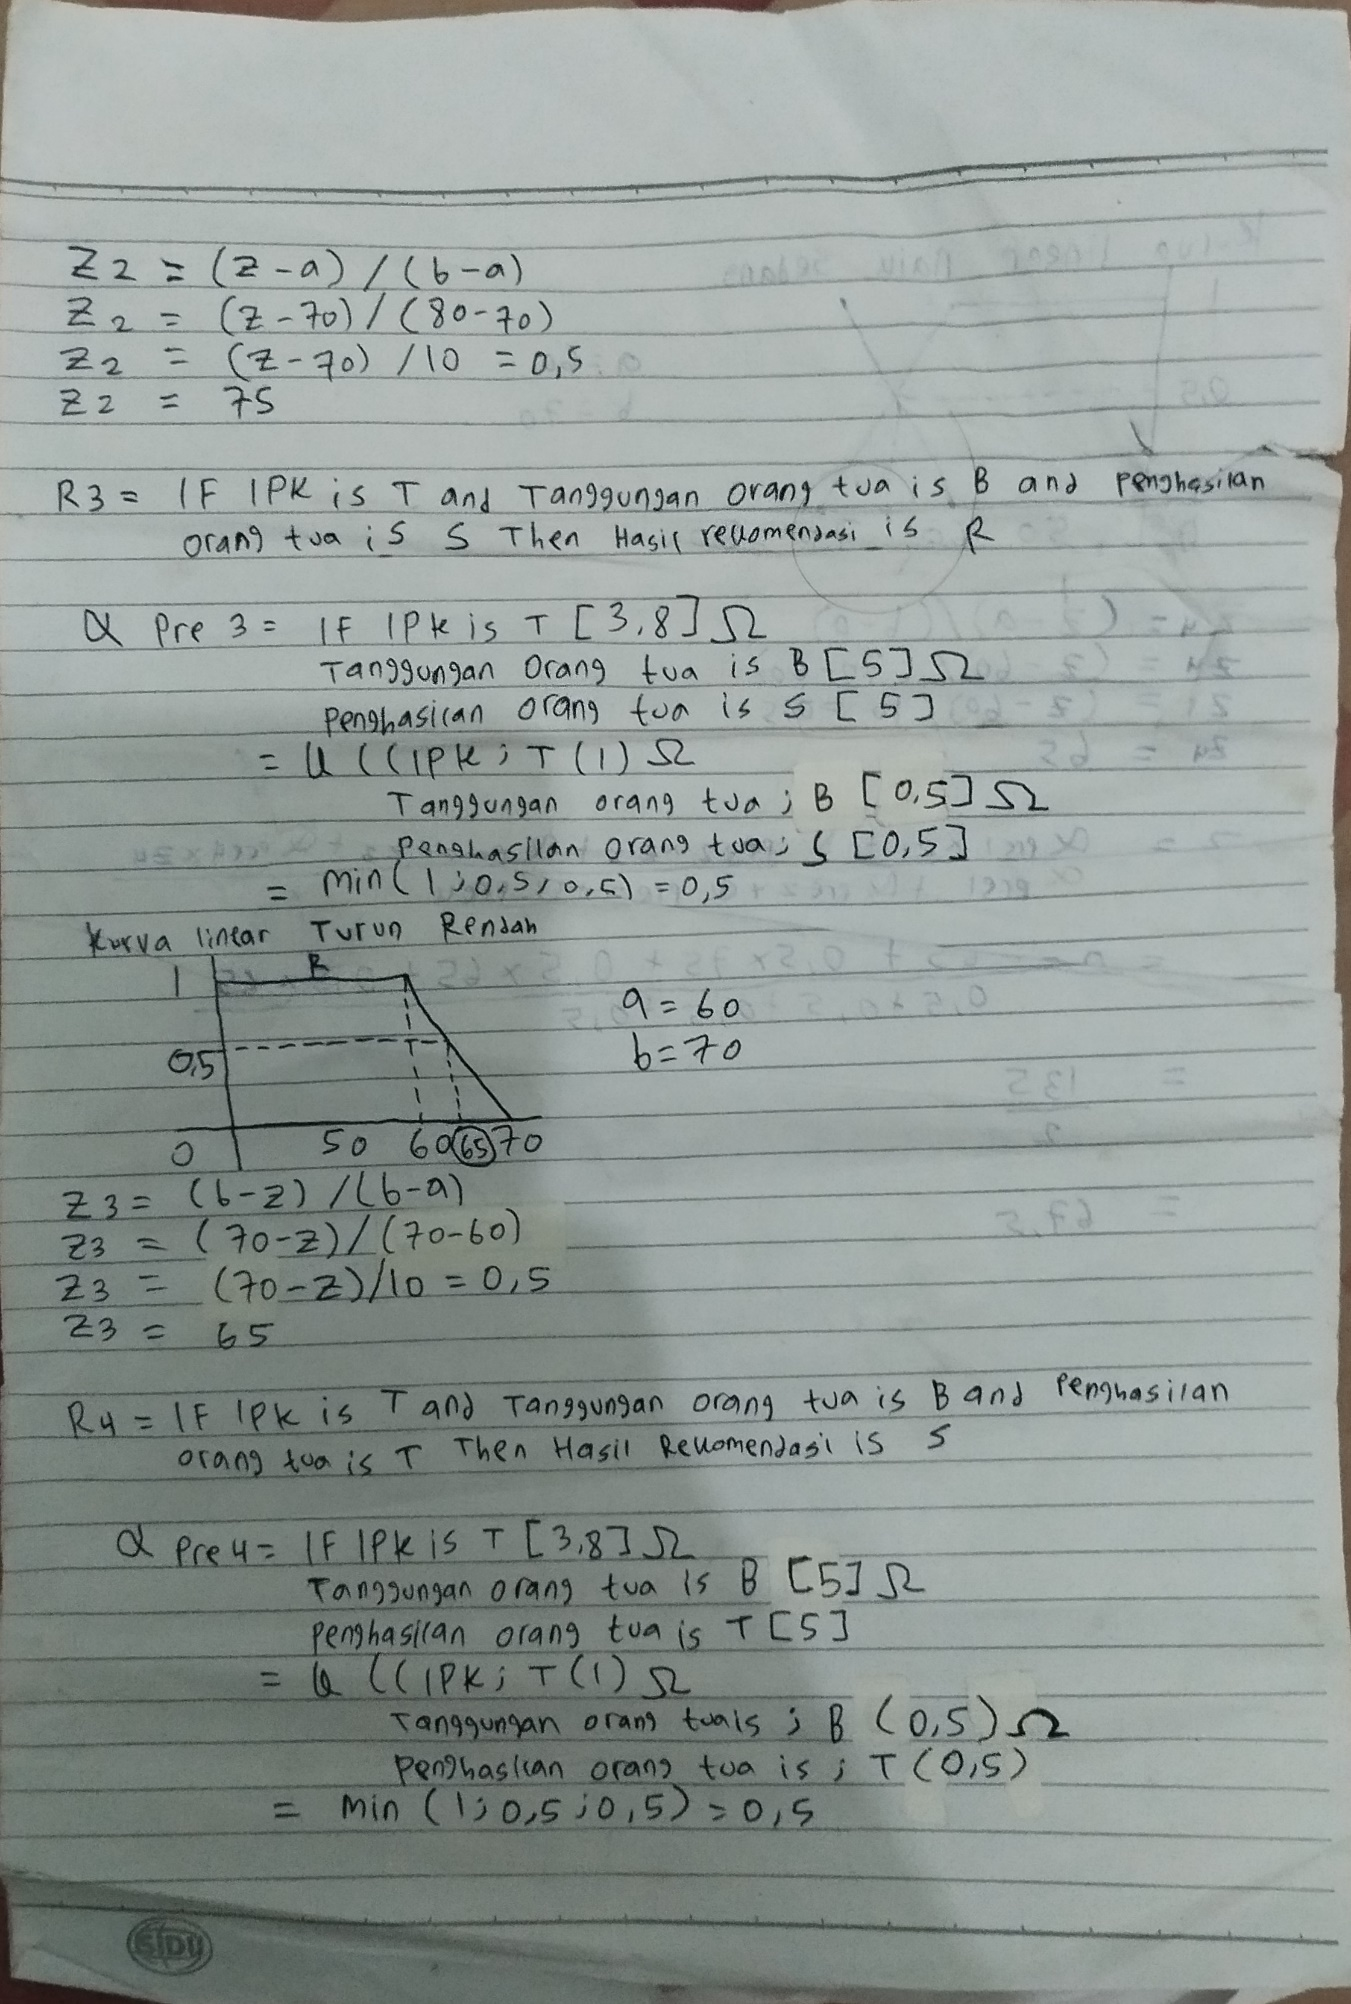 Z2 = (Z-a) / (b-a)
Z2 = (Z-70) / (80-70)
Z2 = (Z-70) / 10 = 0,5
Z2 = 75
R3 = IF IPK is T and Tanggungan orang tua is B and penghasilan
orang tua is S Then Hasil rekomendasi is R
α Pre 3 = IF IPK is T [3,8] Ω
Tanggungan Orang tua is B [5] Ω
penghasilan orang tua is S [5]
= U ((IPK ; T (1) Ω
Tanggungan orang tua ; B [0,5] Ω
penghasilan orang tua ; S [0,5]
= Min ( 1 ; 0,5 ; 0,5) = 0,5
Kurva linear Turun Rendah
1 R
a = 60
0,5
b = 70
0 50 60 65 70
Z3 = (b-z) / (b-a)
Z3 = (70-Z) / (70-60)
Z3 = (70-Z)/10 = 0,5
Z3 = 65
R4 = IF IPK is T and Tanggungan orang tua is B and Penghasilan
orang tua is T Then Hasil Rekomendasi is S
α Pre 4 = IF IPK is T [3,8] Ω
Tanggungan orang tua is B [5] Ω
penghasilan orang tua is T [5]
= U ((IPK ; T (1) Ω
Tanggungan orang tua is ; B (0,5) Ω
Penghasilan orang tua is ; T (0,5)
= Min (1 ; 0,5 ; 0,5) = 0,5
SIDU